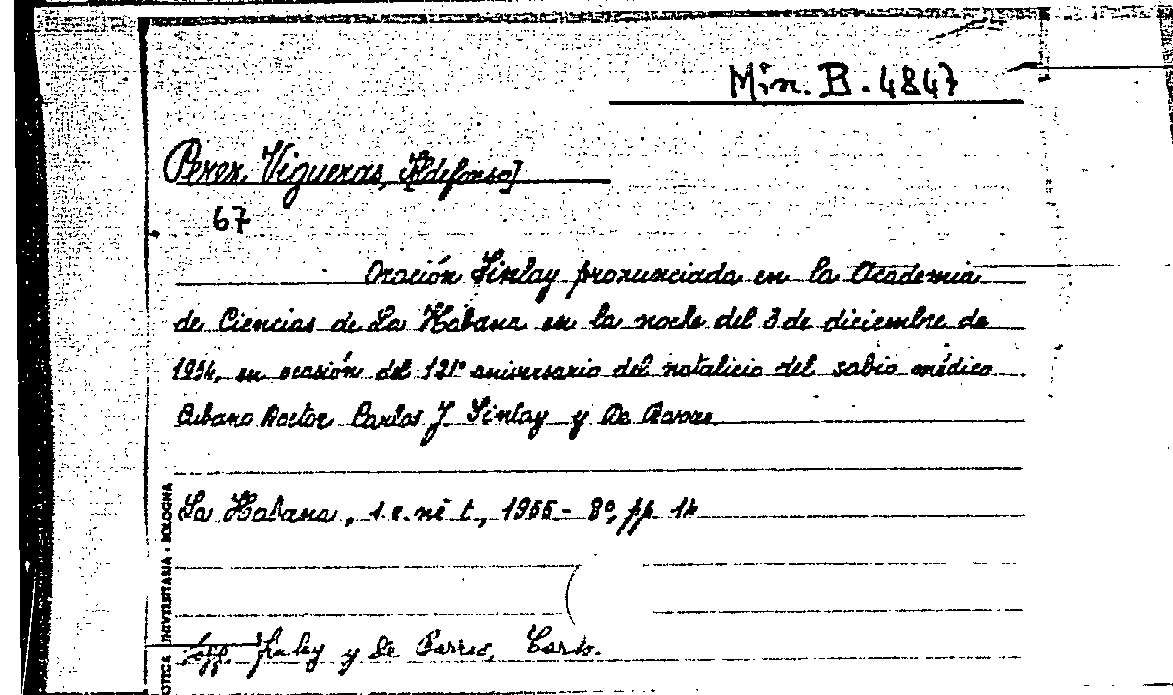 Min. B. 4847
Perez Vigueras, Ildefonso]
67
Oración Finlay pronunciada en la Academia
de Ciencias de La Habana en la noche del 3 de diciembre de
1954, en ocasión del 121° aniversario del natalicio del sabio médico
Cubano Doctor Carlos J. Finlay y De
La Habana, s. e. né t., 1955 - 8°, pp. 14
Finlay y De Barres, Carlo.
BIBLIOTECA UNIVERSITARIA - BOLOGNA